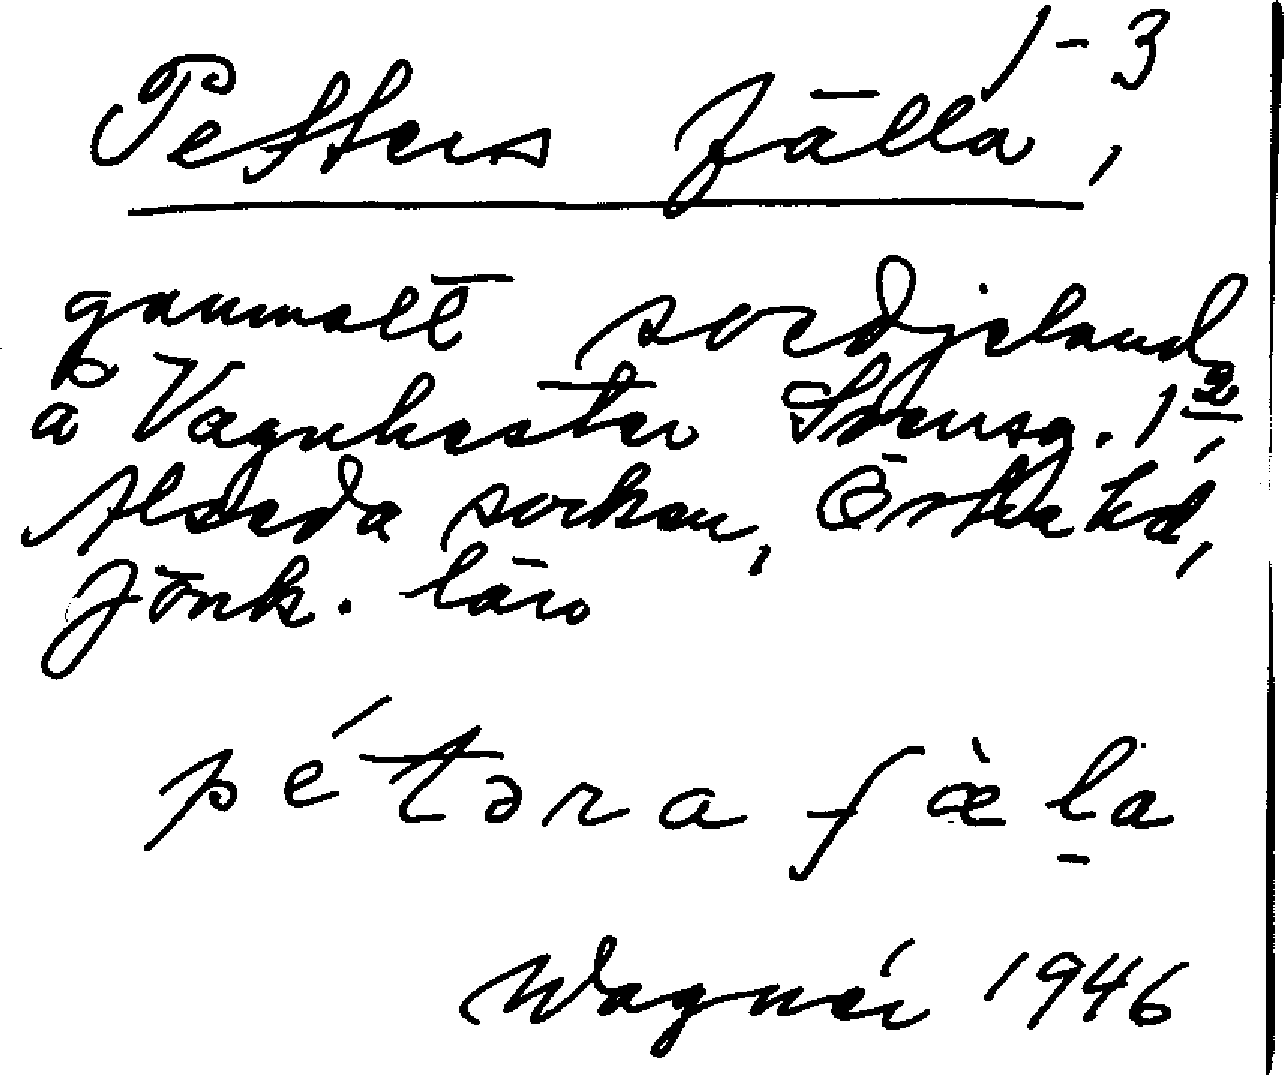 1-3
Petters fälla,
gammalt svedjeland
å Vagnhester Svensg. 1 2/,
Alseda socken, Östra hd,
Jönk. län
pétəra fæ̀la
Wagnér 1946